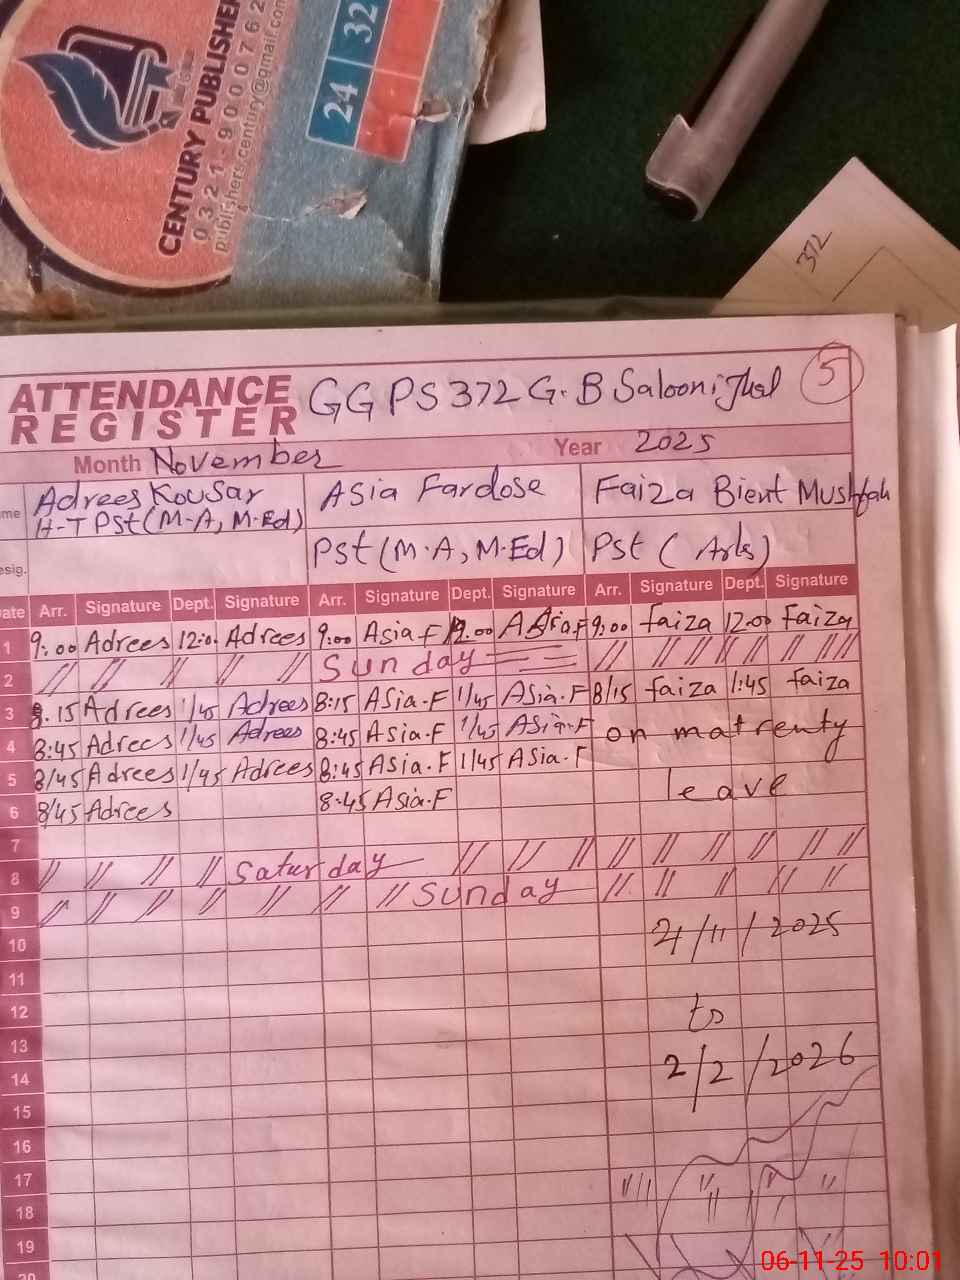 CENTURY PUBLISHER
0321-9000762
publishers.century@gmail.com
24 32
372
ATTENDANCE REGISTER GGPS 372 G.B Salooni Jhal 5
Month November Year 2025
Adrees Kousar Asia Fardose Faiza Bient Mushtah
H-T Pst (M-A, M.Ed) Pst (M.A, M.Ed) Pst ( Arts )
esig.
Date Arr. Signature Dept. Signature Arr. Signature Dept. Signature Arr. Signature Dept. Signature
1 9:00 Adrees 12:0 Adrees 9:00 Asia F 12.00 Asia F 9:00 faiza 12:00 faiza
2 // // // // // Sunday // // // // // //
3 8.15 Adrees 1/45 Adrees 8:15 Asia.F 1/45 Asia.F 8/15 faiza 1:45 faiza
4 8:45 Adrees 1/45 Adrees 8:45 Asia.F 1/45 Asia.F on matrenty
5 8/45 Adrees 1/45 Adrees 8:45 Asia.F 1/45 Asia.F
6 8/45 Adrees 8:45 Asia.F leave
7
8 // // // // Saturday // // // // // // // //
9 // // // // // // // Sunday // // // // //
10 4/11/2025
11
12
13 to
14 2/2/2026
15
16
17
18
19
20
06-11-25 10:01